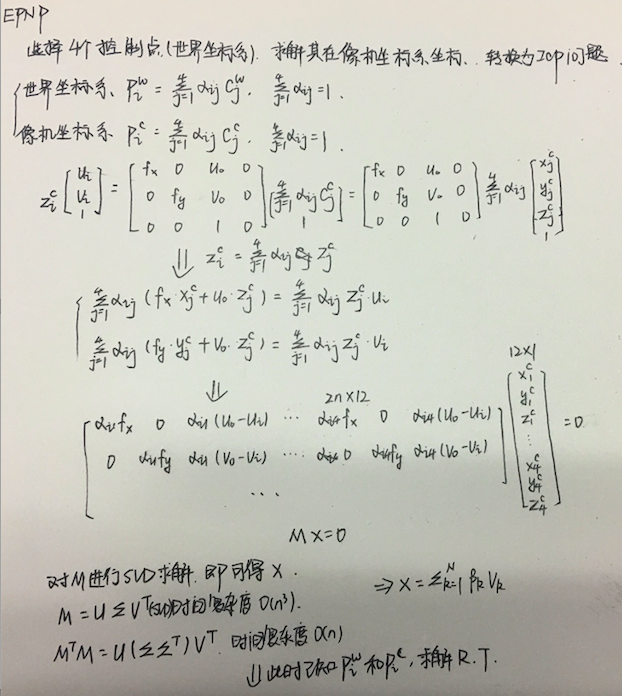 EPNP
选择4个控制点(世界坐标系). 求解其在像机坐标系坐标. 转换为ICP问题
世界坐标系. P_i^w = Σ_{j=1}^4 α_ij C_j^w. Σ_{j=1}^4 α_ij = 1.
像机坐标系 P_i^c = Σ_{j=1}^4 α_ij C_j^c. Σ_{j=1}^4 α_ij = 1.
z_i^c [u_i; v_i; 1] = [fx 0 u_0 0; 0 fy v_0 0; 0 0 1 0] [Σ_{j=1}^4 α_ij C_j^c; 1] = [fx 0 u_0 0; 0 fy v_0 0; 0 0 1 0] Σ_{j=1}^4 α_ij [x_j^c; y_j^c; z_j^c; 1]
⇓ z_i^c = Σ_{j=1}^4 α_ij z_j^c
Σ_{j=1}^4 α_ij (fx·x_j^c + u_0·z_j^c) = Σ_{j=1}^4 α_ij z_j^c·u_i
Σ_{j=1}^4 α_ij (fy·y_j^c + v_0·z_j^c) = Σ_{j=1}^4 α_ij z_j^c·v_i
⇓ 2n×12 12×1
[α_i1 fx 0 α_i1(u_0-u_i) ··· α_i4 fx 0 α_i4(u_0-u_i); 0 α_i1 fy α_i1(v_0-v_i) ···· 0 α_i4 fy α_i4(v_0-v_i); ···] [x_1^c; y_1^c; z_1^c; ···; x_4^c; y_4^c; z_4^c] = 0
MX=0
对M进行SVD求解. 即可得X. ⇒ X = Σ_{k=1}^N β_k V_k
M = U Σ V^T 时间复杂度 O(n³).
M^T M = U(ΣΣ^T)V^T. 时间复杂度 O(n)
⇓ 此时已知 P_i^w 和 P_i^c, 求解R.T.